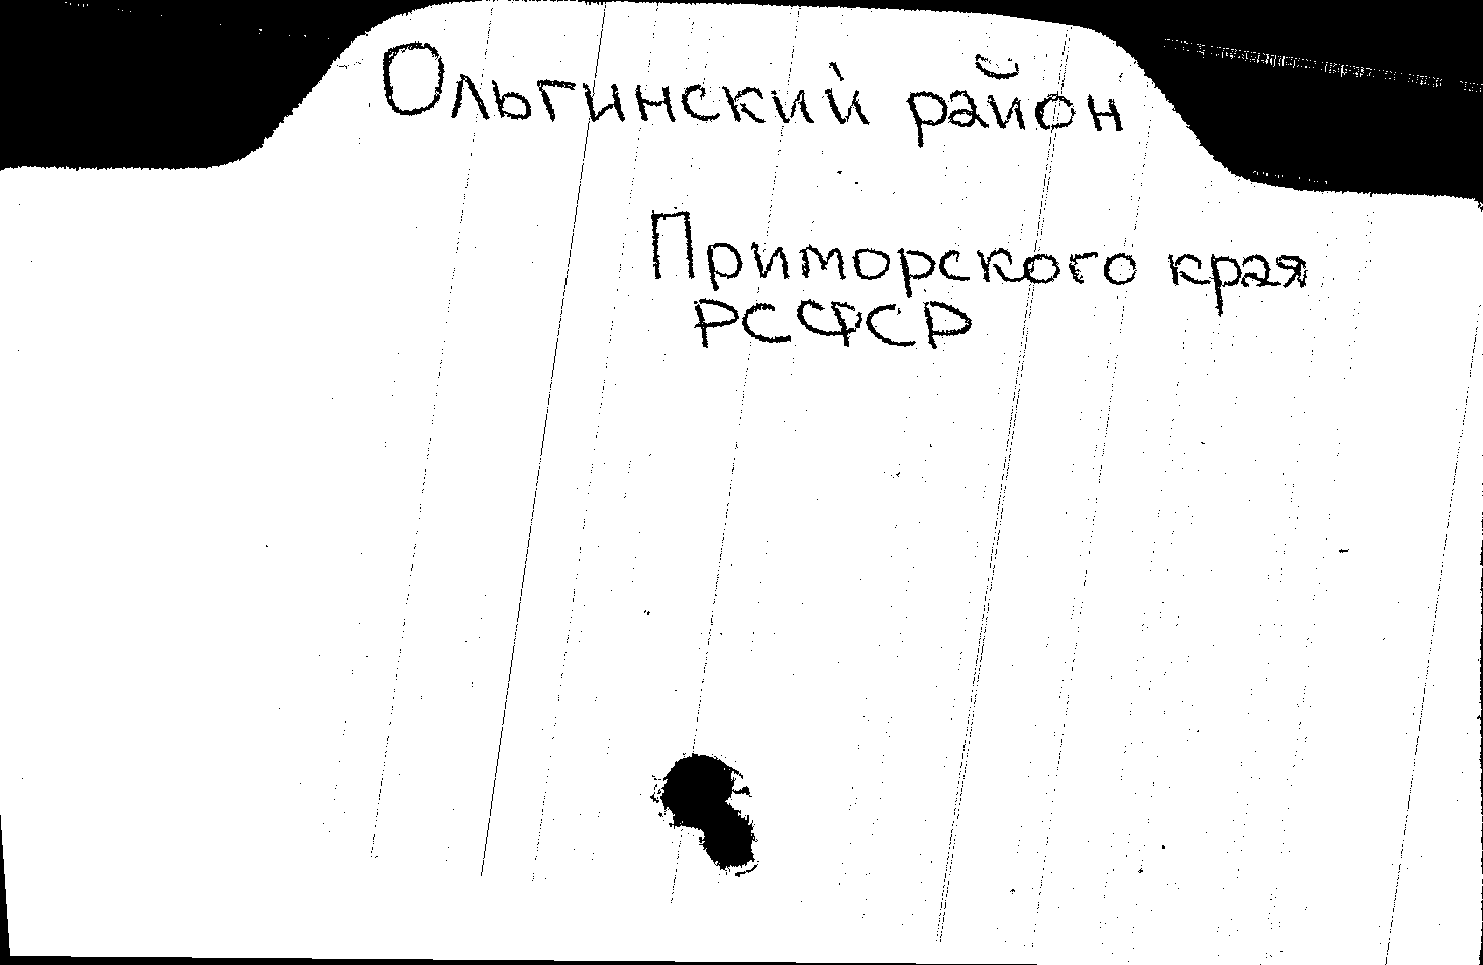 Ольгинский район
Приморского края
РСФСР